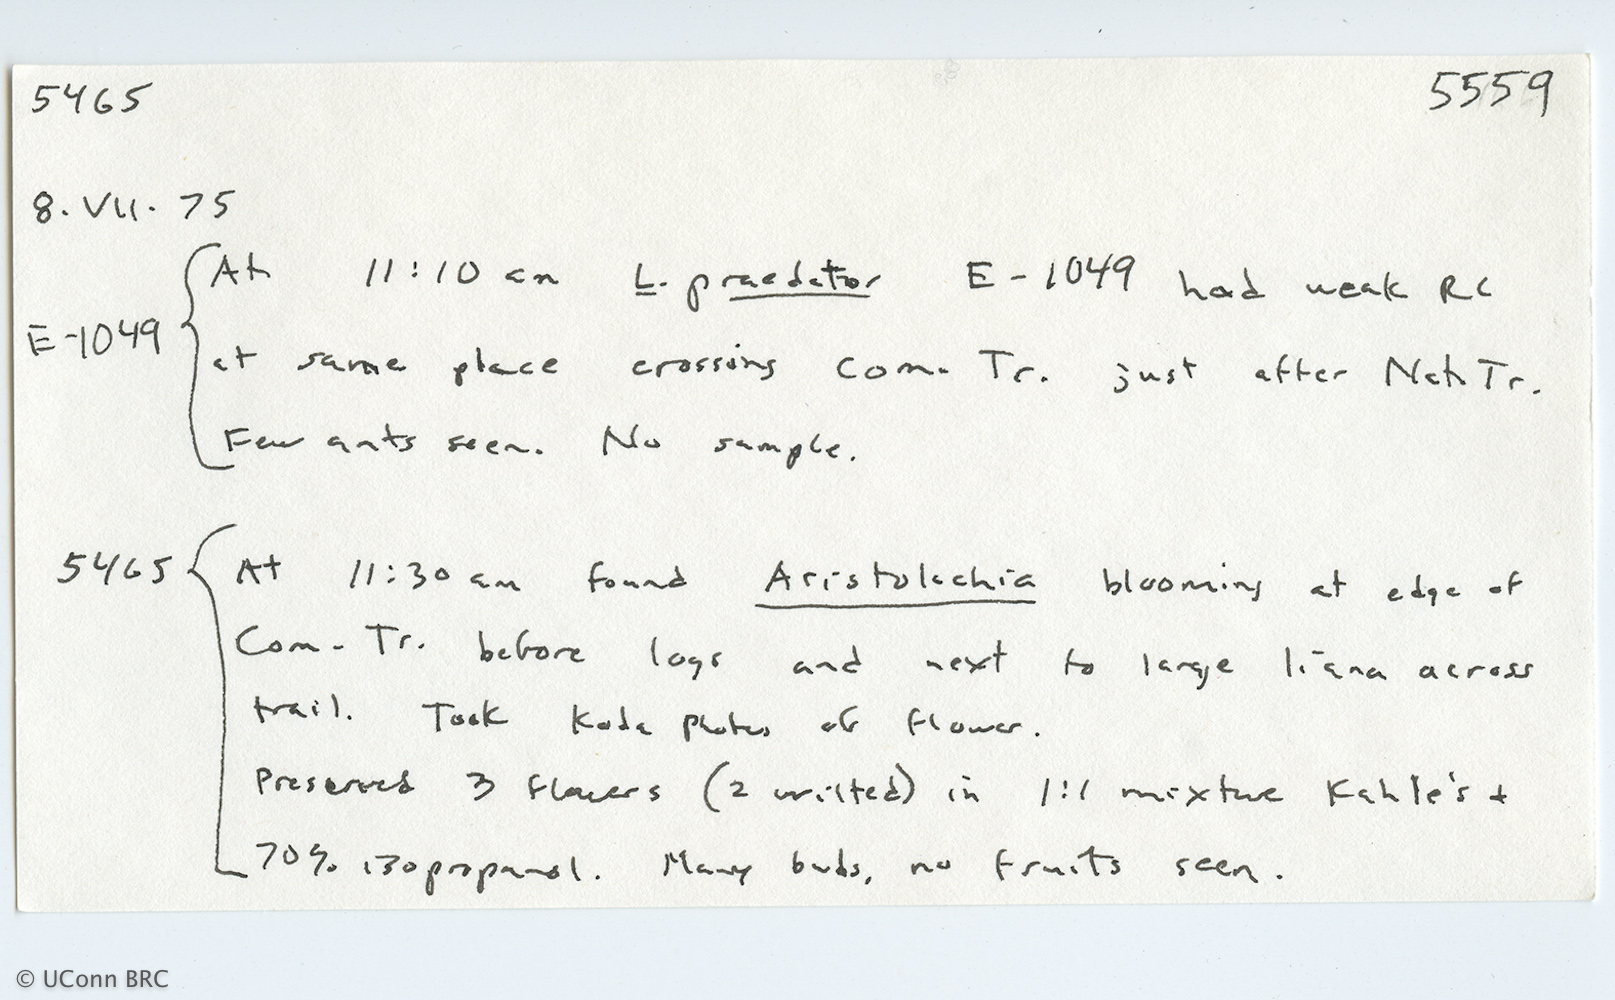 5465 5559
8. VII. 75
At 11:10 am L. praedator E-1049 had weak RC
E-1049
at same place crossing Com. Tr. just after Nat. Tr.
Few ants seen. No sample.
5465 At 11:30 am found Aristolochia blooming at edge of
Com. Tr. before logs and next to large liana across
trail. Took Koda photos of flower.
Preserved 3 flowers (2 wilted) in 1:1 mixture Kahle's +
70% isopropanol. Many buds, no fruits seen.
© UConn BRC